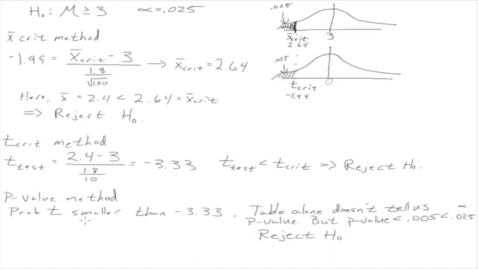 H₀: M ≥ 3    α = .025
x̄ crit method
-1.99 = (x̄crit - 3) / (1.8/√100) → x̄crit = 2.64
Here, x̄ = 2.4 < 2.64 = x̄crit
⇒ Reject H₀.
.025
x̄crit
2.64
3
.025
tcrit
-1.99
0
tcrit method
ttest = (2.4 - 3) / (1.8/10) = -3.33    ttest < tcrit ⇒ Reject H₀.
P-value method
Prob t smaller than -3.33. Table alone doesn't tell us
p-value. But p-value < .005 < .025
Reject H₀